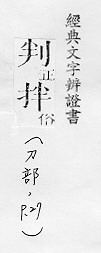 經典文字辨證書
判正拌俗
(刀部，P.29)